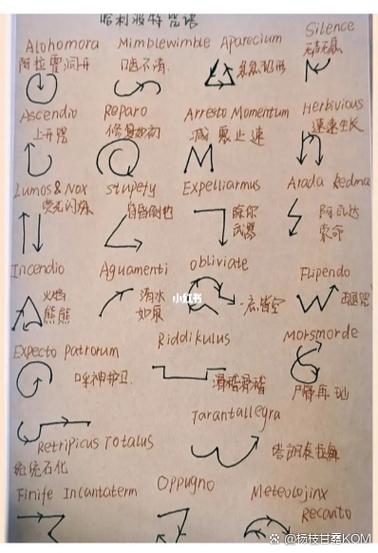 哈利波特咒语
Alohomora Mimblewimble Aparecium Silence
阿拉霍洞开 口齿不清 急急现形 无声无息
Ascendio Reparo Arresto Momentum Herbivious
上升咒 修复如初 减震止速 速速生长
Lumos & Nox Stupefy Expelliarmus Arada Kedma
荧光闪烁 昏昏倒地 除尔武器 阿瓦达索命
Incendio Aguamenti obliviate Flipendo
火焰熊熊 清水如泉 一忘皆空
小红书
Riddikulus Morsmorde
Expecto Patrorum
呼神护卫 滑稽滑稽 尸骨再现
Tarantallegra
Retripicus Totalus 塔朗泰拉舞
统统石化
Finite Incantaterm Oppugno Meteolojinx
Recanto
@杨枝甘露KOM